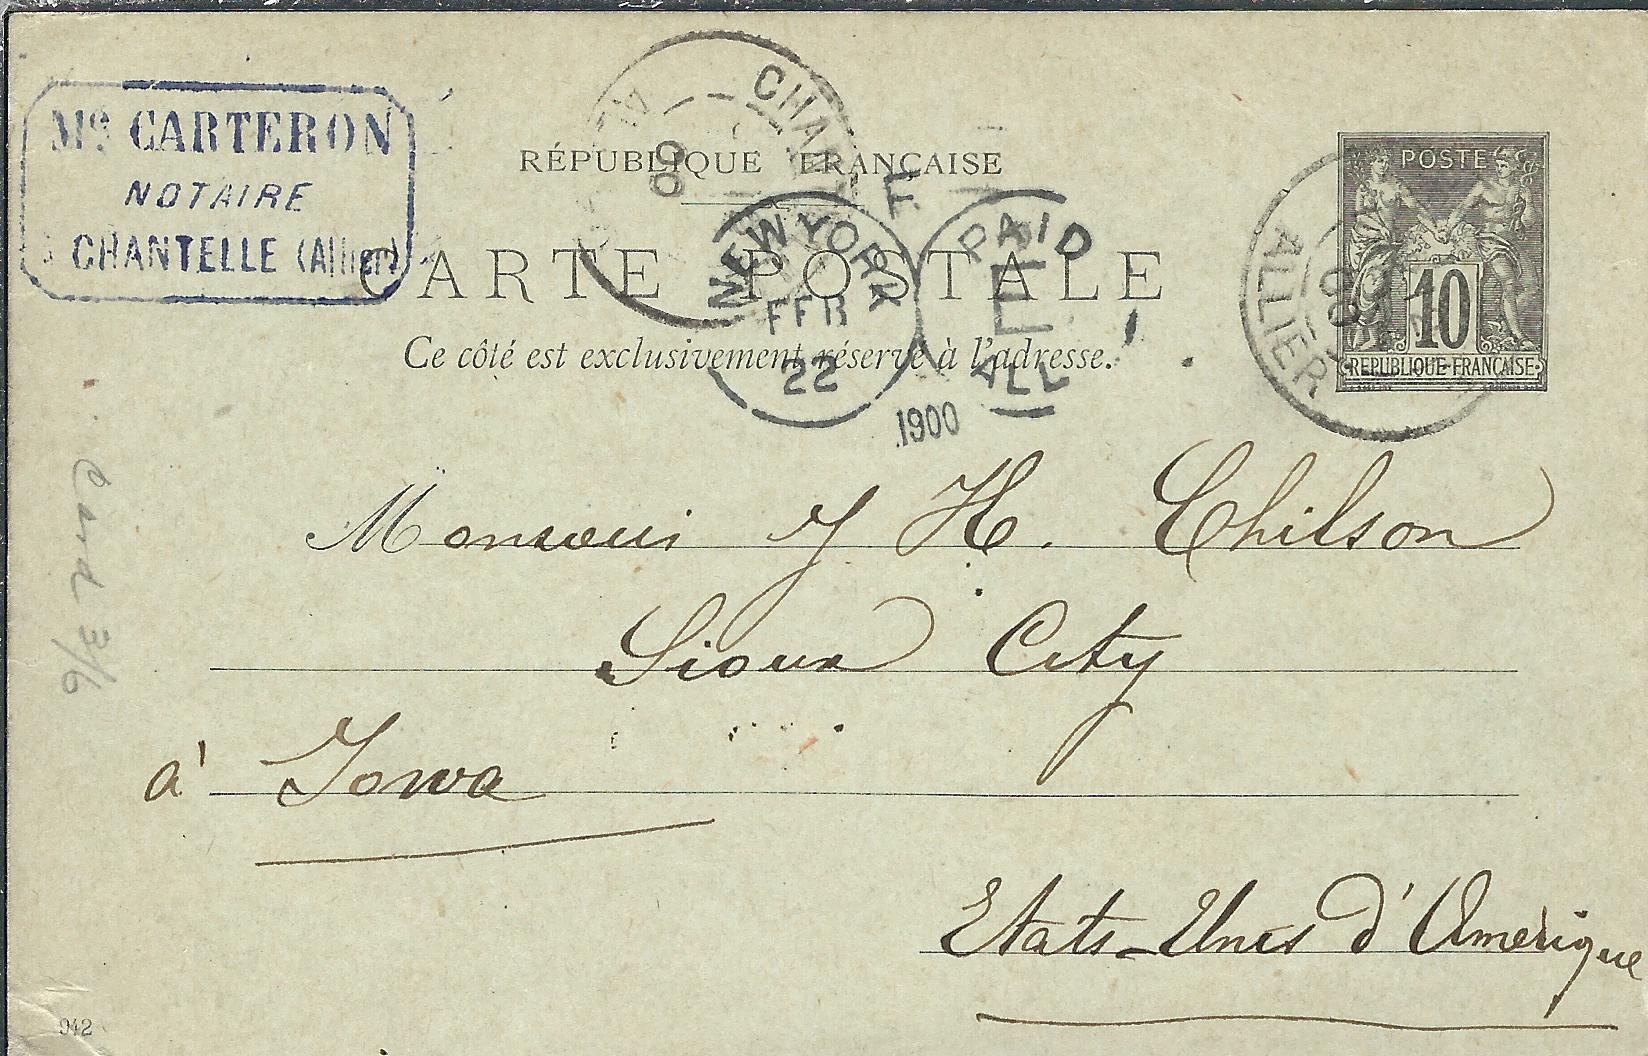 Me CARTERON
NOTAIRE
CHANTELLE (Allier)
CHAN
RÉPUBLIQUE FRANÇAISE
CARTE POSTALE
Ce côté est exclusivement réservé à l'adresse.
NEW YORK
FEB
22
PAID
ALL
1900
ALLIER
POSTE
10
REPUBLIQUE FRANÇAISE
Monsieur J H. Chilson
Sioux City
à Iowa
Etats-Unis d'Amerique
942